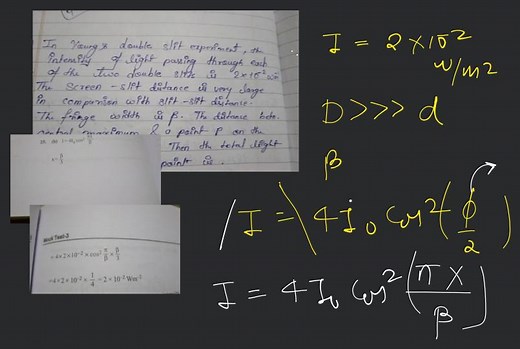 In Young's double slit experiment, the
intensity of light passing through each
of the two double slits is 2×10⁻² w/m
The screen - slit distance is very large
in comparison with slit-slit distance.
The fringe width is β. The distance betn
central maximum & a point P on the
Then the total light
point is .
x =
Mock Test-2
= 4 × 2 × 10⁻² × cos²
= 4 × 2 × 10⁻² × 1/4 = 2 × 10⁻² Wm⁻²
I = 2 × 10⁻²
w/m2
D >>> d
β
I = 4 I₀ cos² (ϕ/2)
I = 4 I₀ cos² (π x/β)